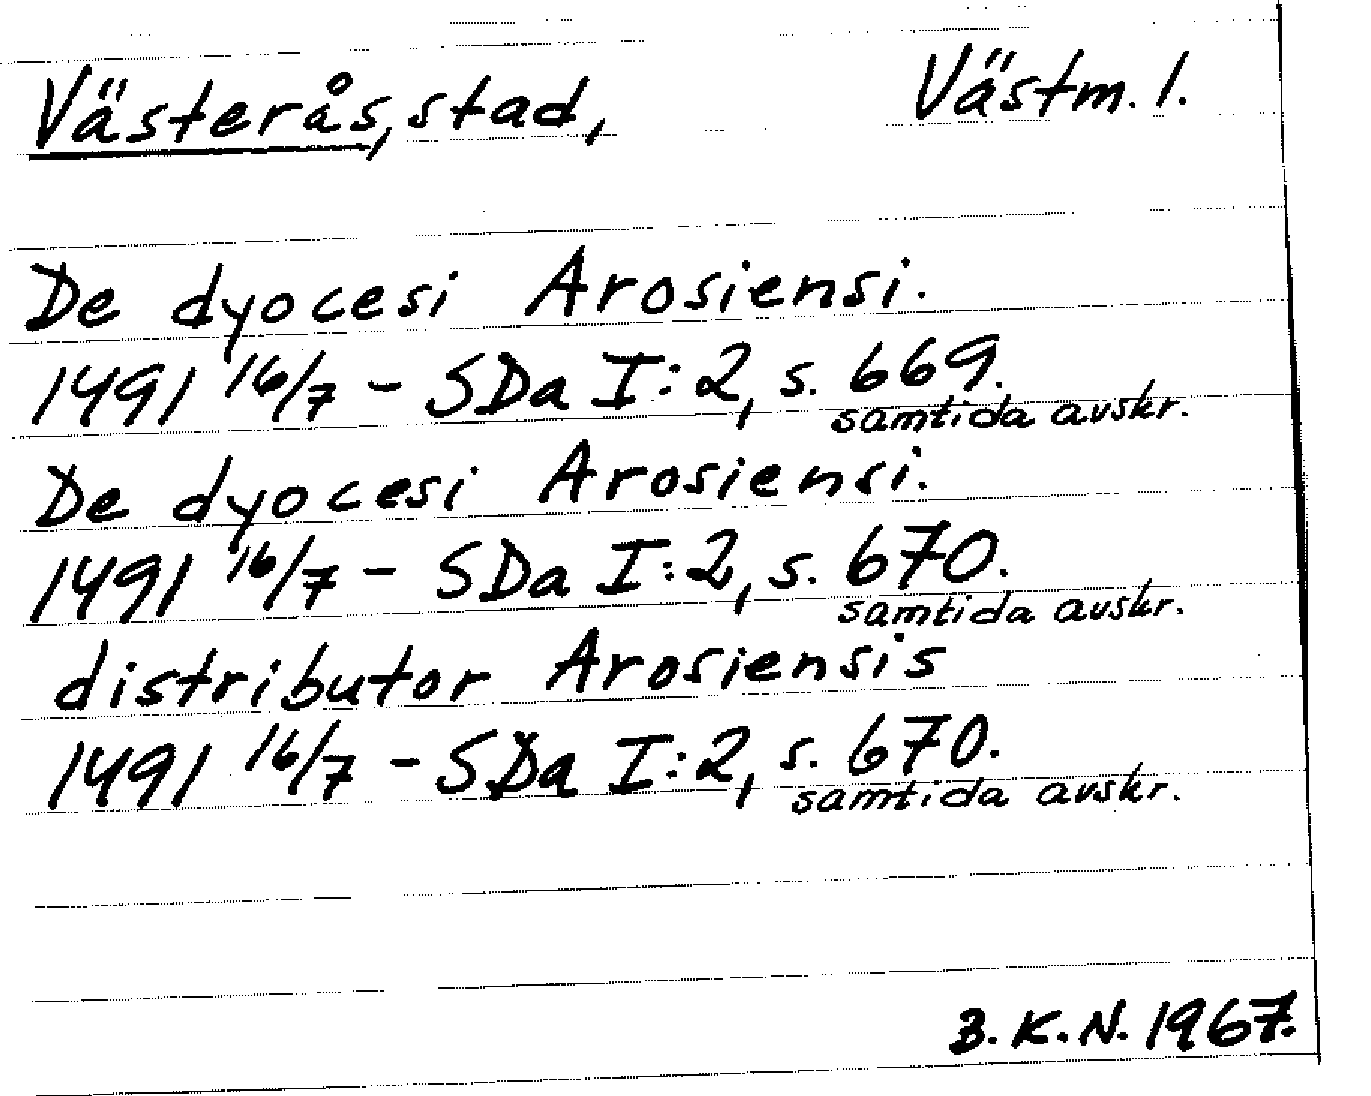 Västerås, stad, Västm. l.
De dyocesi Arosiensi.
1491 16/7 - SDa I:2, s. 669.
samtida avskr.
De dyocesi Arosiensi.
1491 16/7 - SDa I:2, s. 670.
samtida avskr.
distributor Arosiensis
1491 16/7 - SDa I:2, s. 670.
samtida avskr.
B. K. N. 1967.